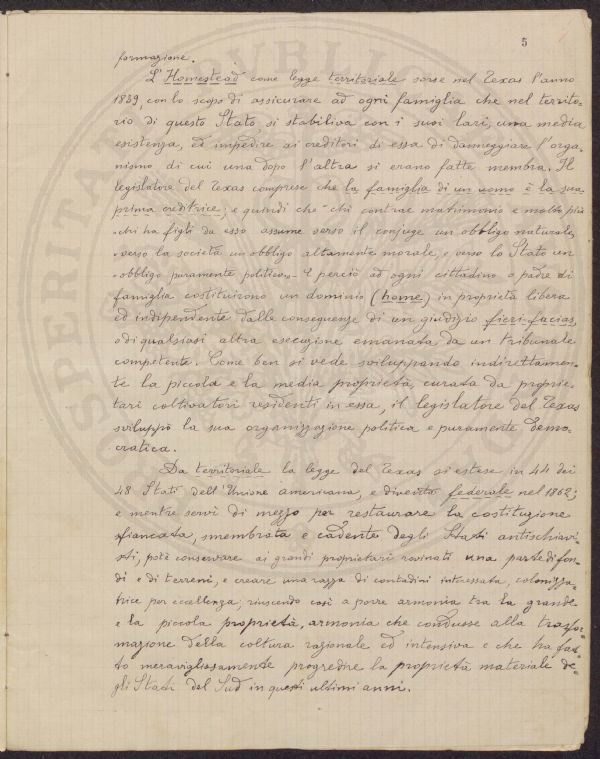 5
formazione.
L'Homestead come legge territoriale sorse nel Texas l'anno
1839, con lo scopo di assicurare ad ogni famiglia che nel territo-
rio di questo Stato, si stabiliva con i suoi lari, una media
esistenza, ed impedire ai creditori di essa di danneggiare l'orga-
nismo di cui una dopo l'altra si erano fatte membra. Il
legislatore del Texas comprese che la famiglia di un uomo è la sua
prima creditrice; e quindi che "chi contrae matrimonio e molto più
"chi ha figli da esso assume verso il conjuge un obbligo naturale,
"verso la società un obbligo altamente morale, e verso lo Stato un
"obbligo puramente politico". E perciò ad ogni cittadino o padre di
famiglia costituirono un dominio (home) in proprietà libera
ed indipendente dalle conseguenze di un giudizio fieri-facias,
o di qualsiasi altra esecuzione emanata da un tribunale
competente. Come ben si vede sviluppando indirettamen-
te la piccola e la media proprietà, curata da proprie-
tari coltivatori residenti in essa, il legislatore del Texas
sviluppò la sua organizzazione politica e puramente demo-
cratica.
Da territoriale la legge del Texas si estese in 44 dei
48 Stati dell'Unione americana, e diventò federale nel 1862;
e mentre servì di mezzo per restaurare la costituzione
sfiancata, smembrata e cadente degli Stati antischiavi-
sti, potè conservare ai grandi proprietari rovinati una parte di fon-
di e di terreni, e creare una razza di contadini interessata, colonizza-
trice per eccellenza; riuscendo così a porre armonia tra la grande
e la piccola proprietà, armonia che condusse alla trasfor-
mazione della coltura razionale ed intensiva e che ha fat-
to meravigliosamente progredire la proprietà materiale de-
gli Stati del Sud in questi ultimi anni.